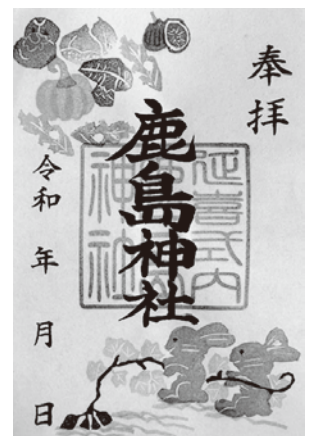 奉拝
鹿島神社
延喜式内
神社
令和 年 月 日